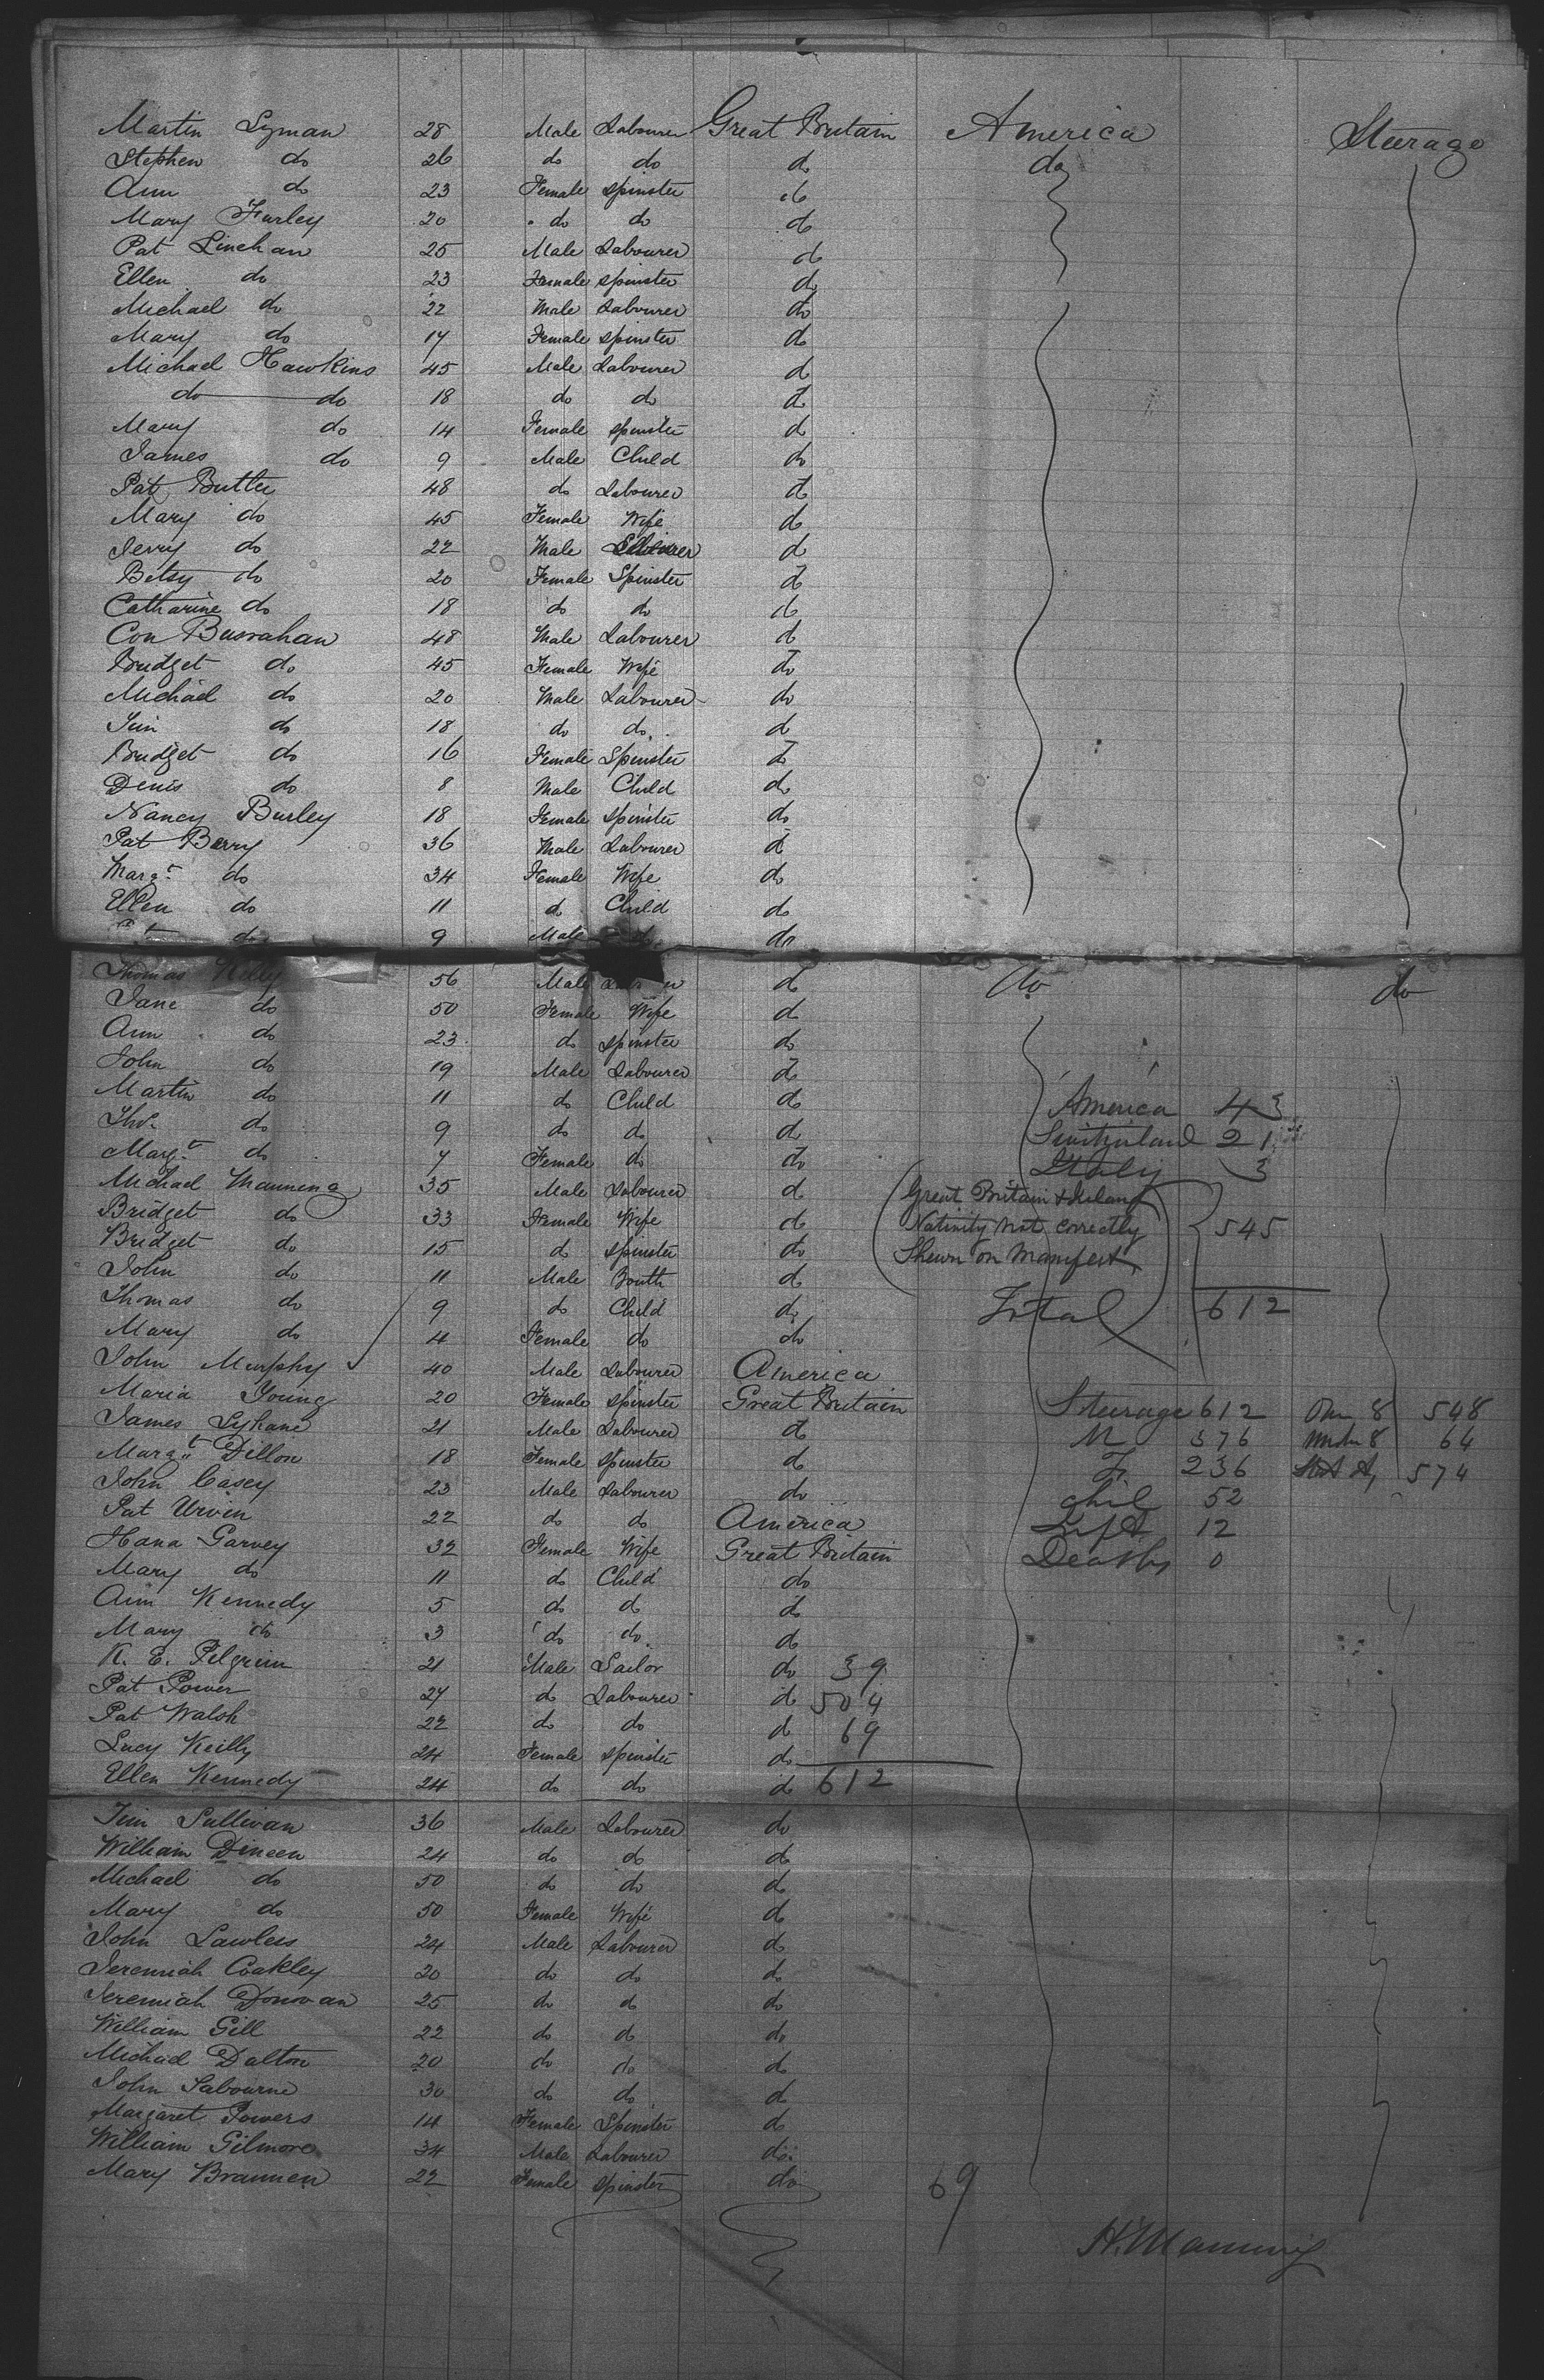 Martin Lyman 28 Male Labourer Great Britain America Steerage
Stephen do 26 do do do do
Ann do 23 Female Spinster do
Mary Furley 20 do do do
Pat Linehan 25 Male Labourer do
Ellen do 23 Female Spinster do
Michael do 22 Male Labourer do
Mary do 17 Female Spinster do
Michael Hawkins 45 Male Labourer do
do do 18 do do do
Mary do 14 Female Spinster do
James do 9 Male Child do
Pat Butler 48 do Labourer do
Mary do 45 Female Wife do
Jerry do 22 Male Labourer do
Betsy do 20 Female Spinster do
Catharine do 18 do do do
Con Busrahan 48 Male Labourer do
Bridget do 45 Female Wife do
Michael do 20 Male Labourer do
Jim do 18 do do do
Bridget do 16 Female Spinster do
Denis do 8 Male Child do
Nancy Burley 18 Female Spinster do
Pat Berry 36 Male Labourer do
Margt do 34 Female Wife do
Ellen do 11 do Child do
do 9 Male do do
Thomas Kelly 56 Male do do do
Jane do 50 Female Wife do
Ann do 23 do Spinster do
John do 19 Male Labourer do
Martin do 11 do Child do America 43
Thos. do 9 do do do Switzerland 21
Margt do 7 Female do do Italy 3
Michael Manning 35 Male Labourer do Great Britain & Ireland
Bridget do 33 Female Wife do Nativity not correctly 545
Bridget do 15 do Spinster do Shewn on Manifest
John do 11 Male Youth do
Thomas do 9 do Child do Total 612
Mary do 4 Female do do
John Murphy 40 Male Labourer America
Maria Young 20 Female Spinster Great Britain Steerage 612 Over 8 548
James Lyhane 21 Male Labourer do M 376 under 8 64
Margt Dillon 18 Female Spinster do F. 236 574
John Casey 23 Male Labourer do Chil 52
Pat Urvin 22 do do America Inft 12
Hana Garvey 32 Female Wife Great Britain Deaths 0
Mary do 11 do Child do
Ann Kennedy 5 do do do
Mary do 3 do do do
K. E. Pilgrim 21 Male Sailor do 39
Pat Power 27 do Labourer do 504
Pat Walsh 22 do do do 69
Lucy Reilly 24 Female Spinster do
Ellen Kennedy 24 do do do 612
Jim Sullivan 36 Male Labourer do
William Dineen 24 do do do
Michael do 50 do do do
Mary do 50 Female Wife do
John Lawless 24 Male Labourer do
Jeremiah Coakley 20 do do do
Jeremiah Donovan 25 do do do
William Gill 22 do do do
Michael Dalton 20 do do do
John Labourne 30 do do do
Margaret Powers 14 Female Spinster do
William Gilmore 34 Male Labourer do
Mary Brannen 22 Female Spinster do 69
H. Manning